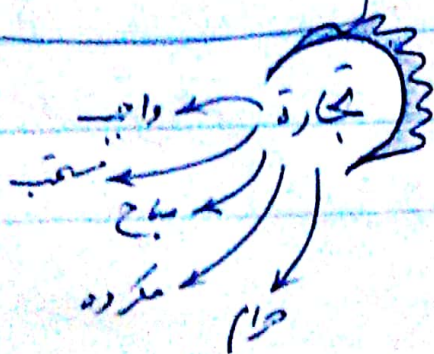 تجارة
واجب
مستحب
مباح
مکروه
حرام